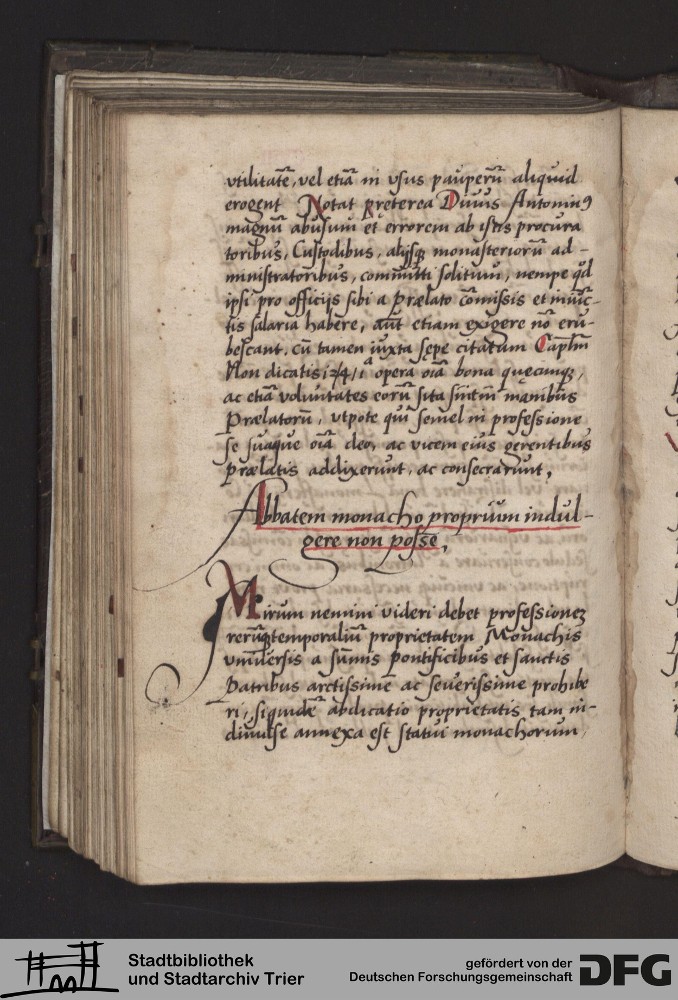 vtilitatē, vel etiā in vsus pauperū aliquid
erogent Notat pręterea Diuus Antoninꝰ
magnū abusum et errorem ab istis procura
toribus, Custodibus, alijsqꝫ monasteriorū ad-
ministratoribus, committi solitum, nempe qd̄
ipsi pro officijs sibi a Prælato cōmissis et iniūc-
tis salaria habere, aut etiam exigere nō eru-
bescant. cū tamen iuxta sępe citatum Caplm̄
Non dicatis opera oīa bona quęcunqꝫ,
ac etiā voluntates eorū sita sint in manibus
Prælatorū, vtpote qui semel in professione
se suaque oīa deo, ac vicem eius gerentibus
prælatis addixerunt, ac consecrarunt,
Abbatem monacho proprium indul-
gere non posse,
Mirum nemini videri debet professionem
rerūqꝫ temporaliū proprietatem Monachis
vniuersis a sūmis pontificibus et sanctis
Patribus arctissime ac seuerissime prohibe
ri, siquidē abdicatio proprietatis tam in-
diuulse annexa est statui monachorum,
Stadtbibliothek
und Stadtarchiv Trier
gefördert von der
Deutschen Forschungsgemeinschaft
DFG